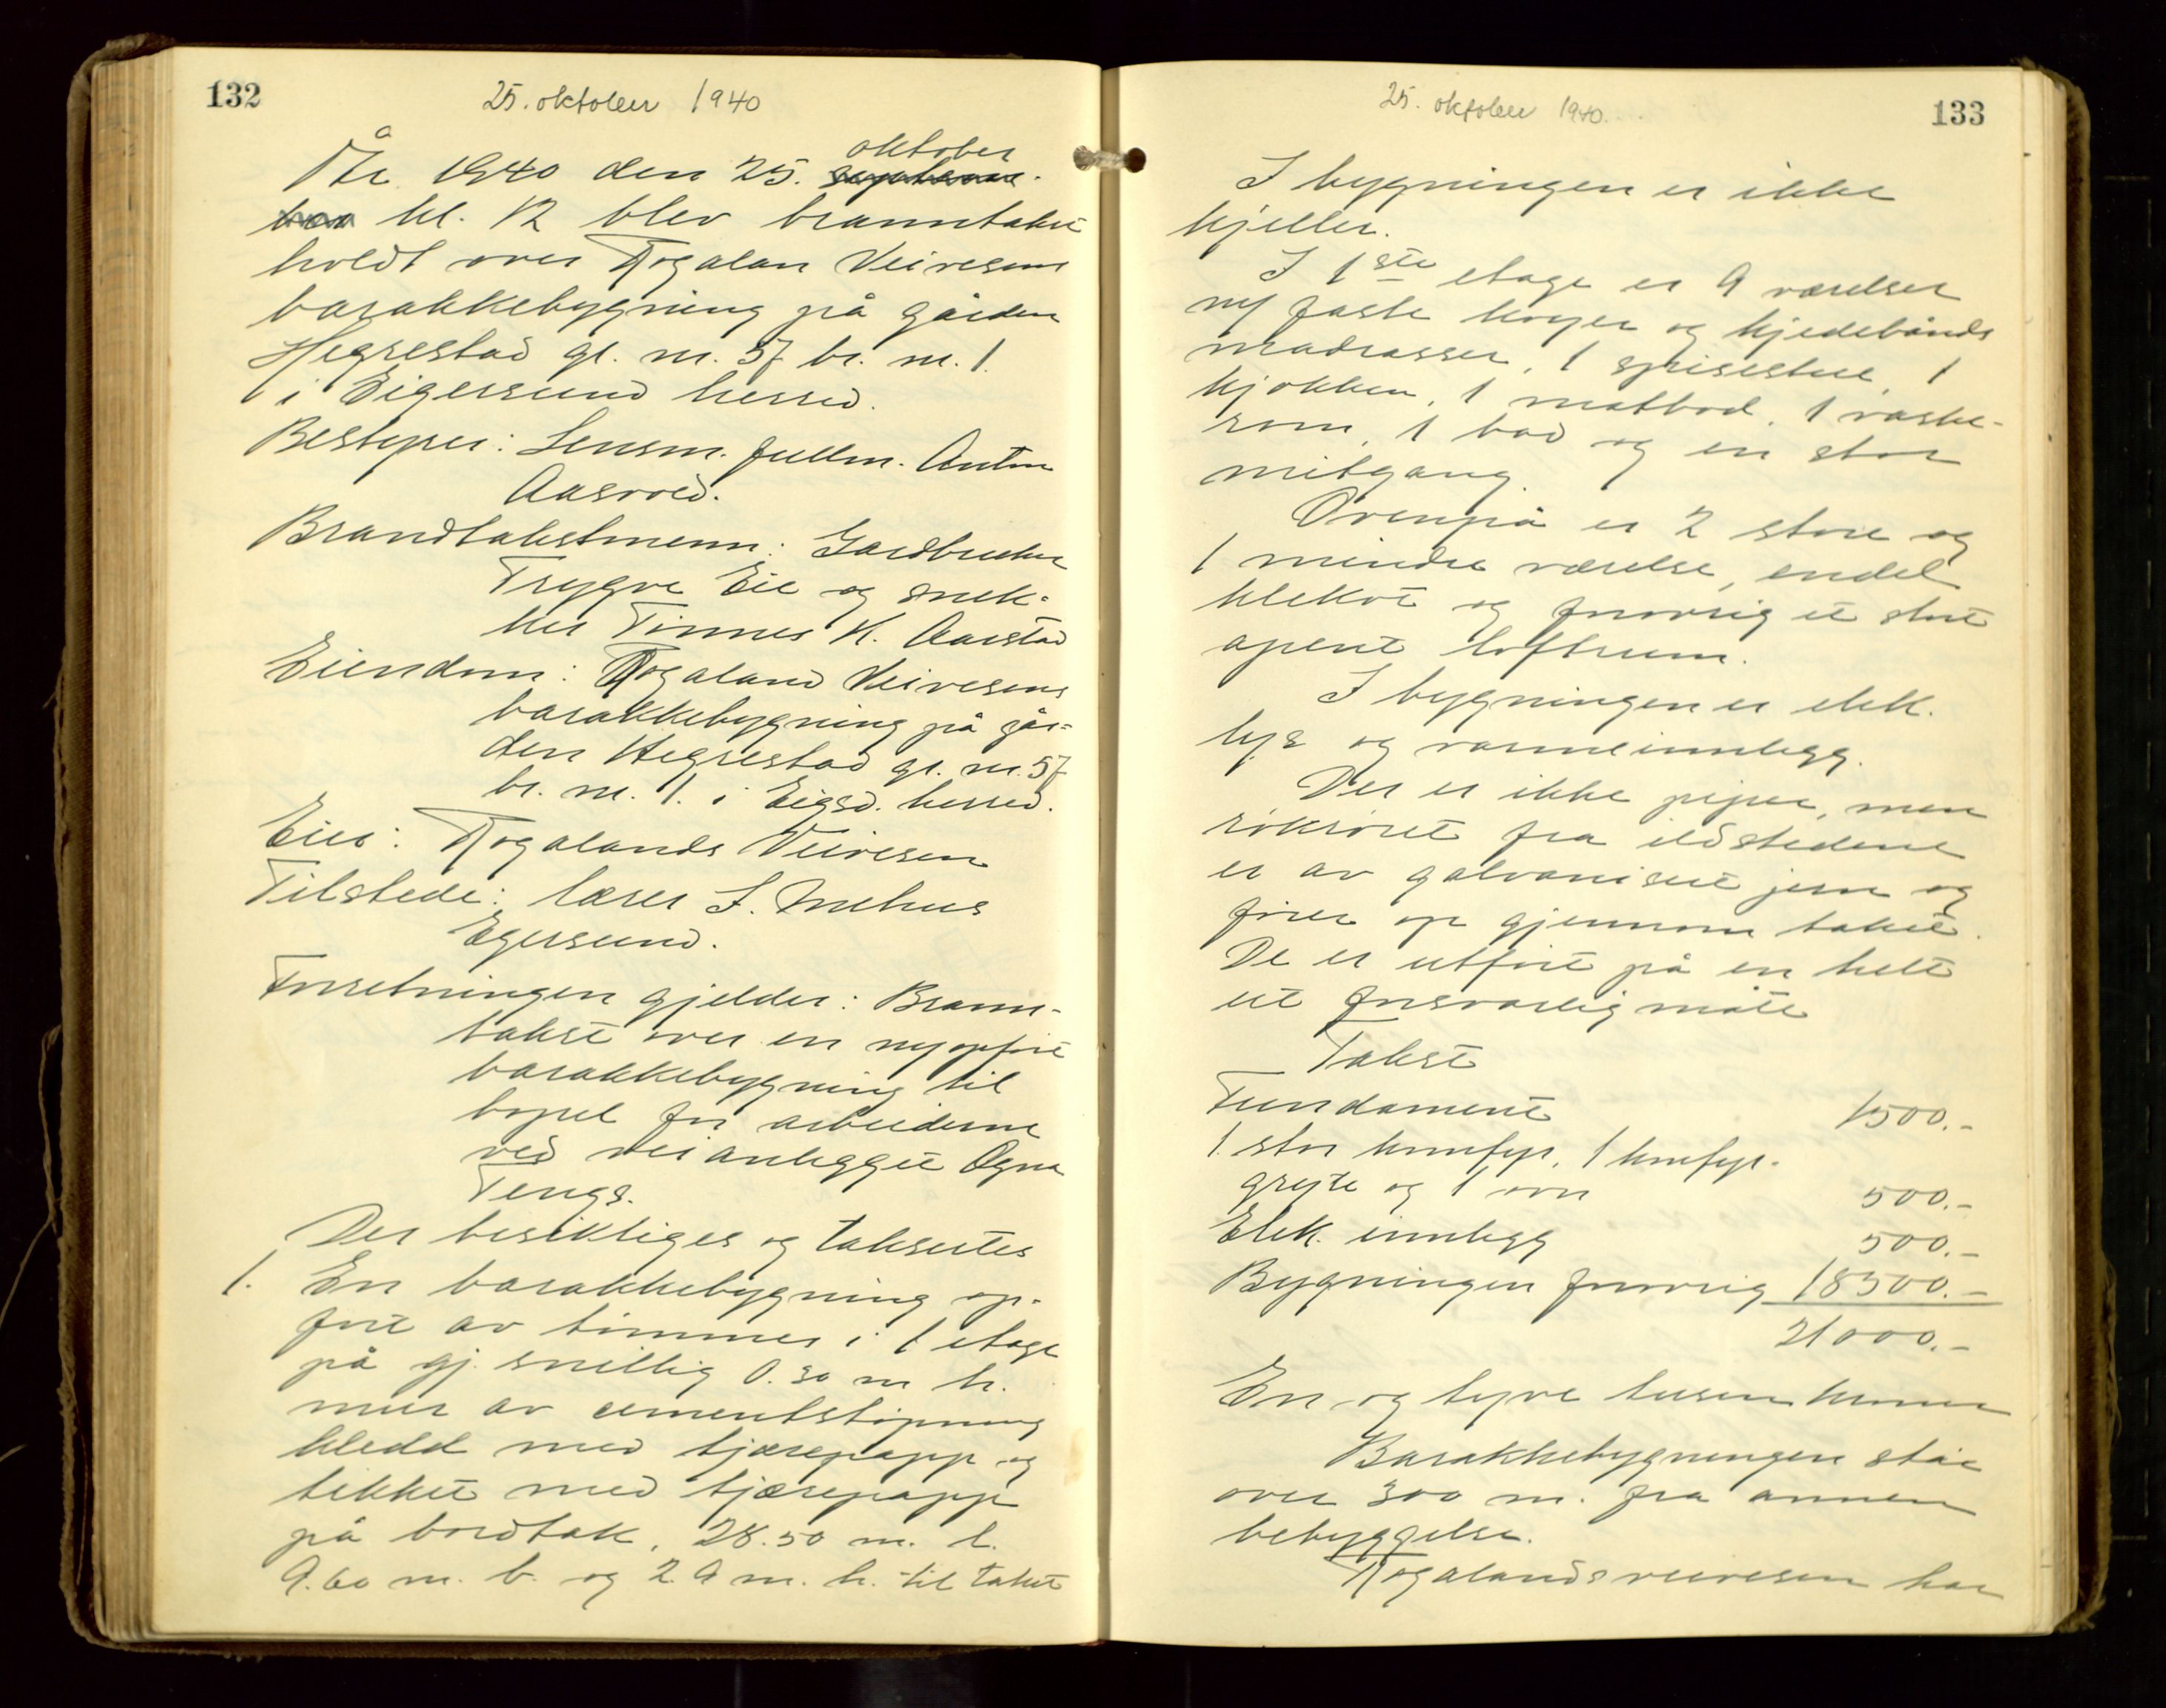 132
25. oktober 1940
År 1940 den 25. oktober
kl. 12 blev branntakst
holdt over Rogalan Veivesens
barakkebygning på gården
Hegrestad gr. nr. 57 br. nr. 1.
i Eigersund herred.
Bestyrer: Lensm. fullm. Anton
Aasvold.
Brandtakstmenn: Gardbruker
Trygve Eie og snek-
ker Tønnes K. Aarstad
Eiendom: Rogaland Veivesens
barakkebygning på går-
den Hegrestad gr. nr. 57
br. nr. 1. i Eigsd. herred.
Eier: Rogalands Veivesen
Tilstede: lærer S. Mehus
Egersund.
Forretningen gjelder: Brann-
takst over en nyopført
barakkebygning til
bopel for arbeiderne
ved veianlegget Ogna
Tengs.
Der besiktiges og taksertes
1. En barakkebygning op-
ført av tømmer i 1 etage
på gj. snittlig 0.30 m h.
mur av cementstøpning
kledd med tjærepapp og
tekket med tjærepapp
på bordtak, 28.50 m. l.
9.60 m. b. og 2.9 m. h. til taket
25. oktober 1940.
133
I bygningen er ikke
kjeller.
I 1ste etage er 9 værelser
m/ faste køyer og kjedebånds
madrasser, 1 spisestue, 1
kjøkken, 1 matbod, 1 vaske-
rom, 1 bad og en stor
midtgang.
Ovenpå er 2 store og
1 mindre værelse, endel
klekott og forøvrig et stort
åpent loftrum.
I bygningen er elek.
lys og varmeinnlegg.
Der er ikke piper, men
røkrøret fra ildstedene
er av galvanisert jern og
fører op gjennom taket.
De er utført på en helt
ut forsvarlig måte
Takst
Fundament 1500.-
1 stor komfyr, 1 komfyr-
gryte og 1 ovn 500.-
Elek. innlegg 500.-
Bygningen forøvrig 18500.-
21000.-
En og tyve tusen kroner
Barakkebygningen står
over 300 m. fra annen
bebyggelse.
Rogalands veivesen har